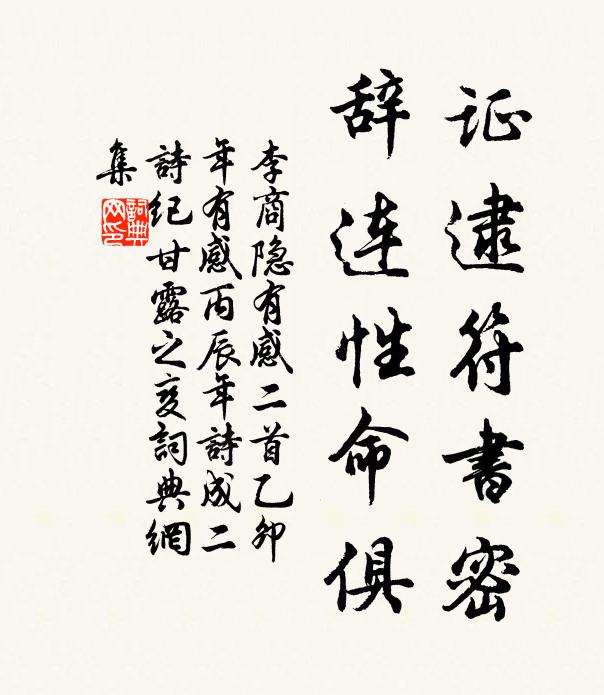 证逮符书密
辞连性命俱
李商隐有感二首乙卯
年有感丙辰年诗成二
詩纪甘露之变詞典網
集
詞典網印